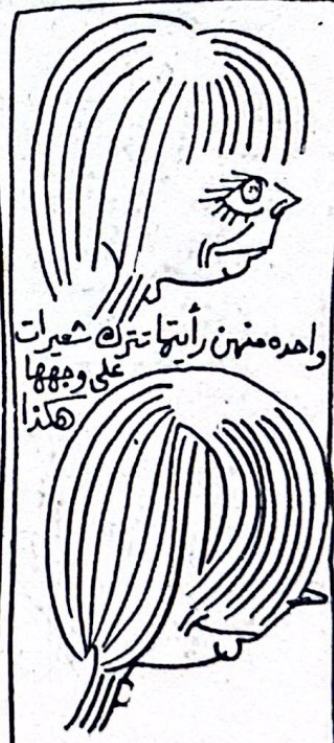 واحده منهن رأيتها تترك شعيرات
على وجهها
هكذا